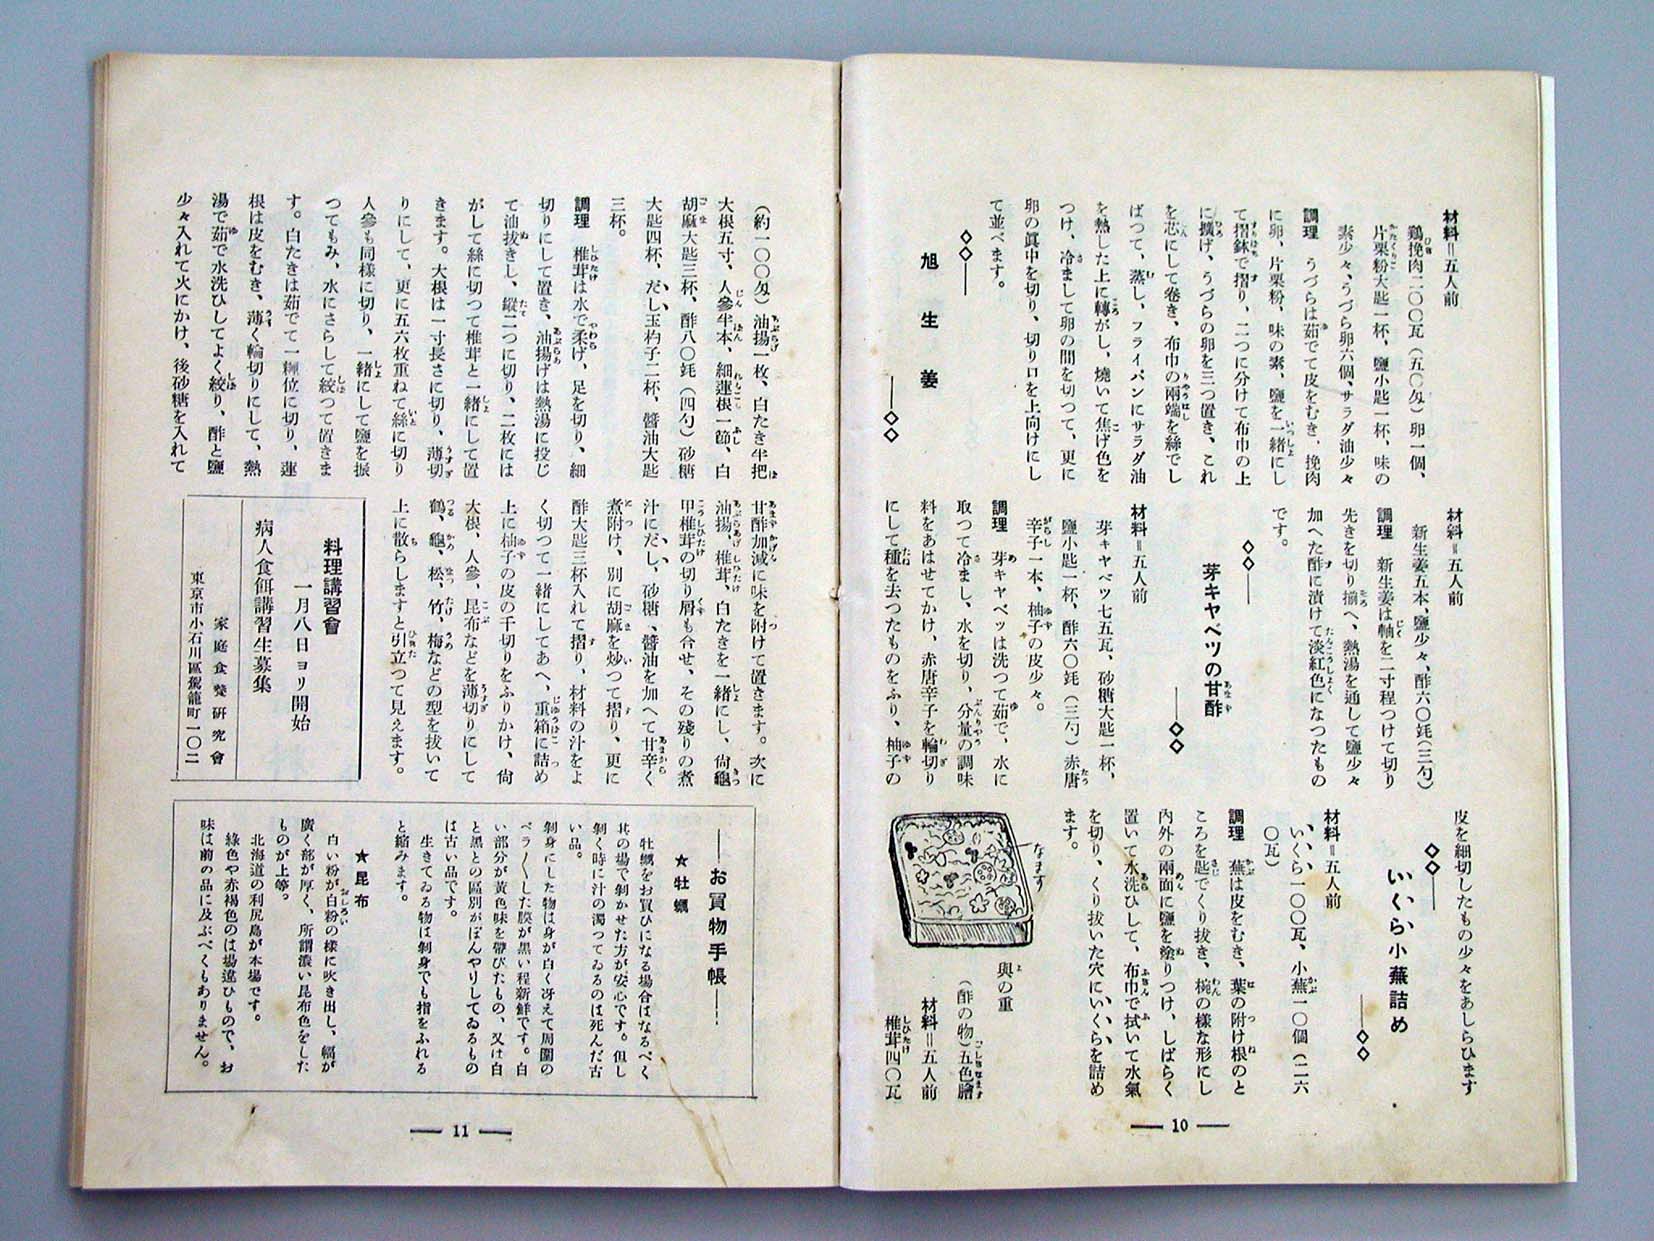 材料＝五人前
鶏挽肉二〇〇瓦（五〇匁）卵一個、
片栗粉大匙一杯、鹽小匙一杯、味の
素少々、うづら卵六個、サラダ油少々
調理　うづらは茹でて皮をむき、挽肉
に卵、片栗粉、味の素、鹽を一緒にし
て摺鉢で摺り、二つに分けて布巾の上
に擴げ、うづらの卵を三つ置き、これ
を芯にして卷き、布巾の兩端を絲でし
ばつて、蒸し、フライパンにサラダ油
を熱した上に轉がし、燒いて焦げ色を
つけ、冷まして卵の間を切つて、更に
卵の眞中を切り、切り口を上向けにし
て並べます。
旭生姜
材料＝五人前
新生姜五本、鹽少々、酢六〇竓（三勺）
調理　新生姜は軸を二寸程つけて切り
先きを切り揃へ、熱湯を通して鹽少々
加へた酢に漬けて淡紅色になつたもの
です。
芽キヤベツの甘酢
材料＝五人前
芽キヤベツ七五瓦、砂糖大匙一杯、
鹽小匙一杯、酢六〇竓（三勺）赤唐
辛子一本、柚子の皮少々。
調理　芽キヤベツは洗つて茹で、水に
取つて冷まし、水を切り、分量の調味
料をあはせてかけ、赤唐辛子を輪切り
にして種を去つたものをふり、柚子の
皮を細切したもの少々をあしらひます
いくら小蕪詰め
材料＝五人前
いくら一〇〇瓦、小蕪一〇個（二六
〇瓦）
調理　蕪は皮をむき、葉の附け根のと
ころを匙でくり抜き、椀の樣な形にし
內外の兩面に鹽を塗りつけ、しばらく
置いて水洗ひして、布巾で拭いて水氣
を切り、くり拔いた穴にいくらを詰め
ます。
なます
與の重
（酢の物）五色膾
材料＝五人前
椎茸四〇瓦
10
（約一〇〇匁）油揚一枚、白たき半把
大根五寸、人參半本、細蓮根一節、白
胡麻大匙三杯、酢八〇竓（四勺）砂糖
大匙四杯、だし玉杓子二杯、醬油大匙
三杯。
調理　椎茸は水で柔げ、足を切り、細
切りにして置き、油揚げは熱湯に投じ
て油拔きし、縱二つに切り、二枚には
がして絲に切つて椎茸と一緒にして置
きます。大根は一寸長さに切り、薄切
りにして、更に五六枚重ねて絲に切り
人參も同樣に切り、一緒にして鹽を振
つてもみ、水にさらして絞つて置きま
す。白たきは茹でて一糎位に切り、蓮
根は皮をむき、薄く輪切りにして、熱
湯で茹で水洗ひしてよく絞り、酢と鹽
少々入れて火にかけ、後砂糖を入れて
甘酢加減に味を附けて置きます。次に
油揚、椎茸、白たきを一緖にし、尙龜
甲椎茸の切り屑も合せ、その殘りの煮
汁にだし、砂糖、醬油を加へて甘辛く
煮附け、別に胡麻を炒つて摺り、更に
酢大匙三杯入れて摺り、材料の汁をよ
く切つて一緖にしてあへ、重箱に詰め
上に柚子の皮の千切りをふりかけ、尙
大根、人參、昆布などを薄切りにして
鶴、龜、松、竹、梅などの型を拔いて
上に散らしますと引立つて見えます。
料理講習會
一月八日ヨリ開始
病人食餌講習生募集
家庭食養研究會
東京市小石川區駕籠町一〇二
お買物手帳
★牡蠣
牡蠣をお買ひになる場合はなるべく
其の場で剝かせた方が安心です。但し
剝く時に汁の濁つてゐるのは死んだ古
い品。
剝身にした物は身が白く冴えて周圍の
ベラ〳〵した膜が黑い程新鮮です。白
い部分が黃色味を帶びたもの、又は白
と黑との區別がぼんやりしてゐるもの
は古い品です。
生きてゐる物は剝身でも指をふれる
と縮みます。
★昆布
白い粉が白粉の樣に吹き出し、幅が
廣く部が厚く、所謂濃い昆布色をした
ものが上等。
北海道の利尻島が本場です。
綠色や赤褐色のは場違ひもので、お
味は前の品に及ぶべくもありません。
11